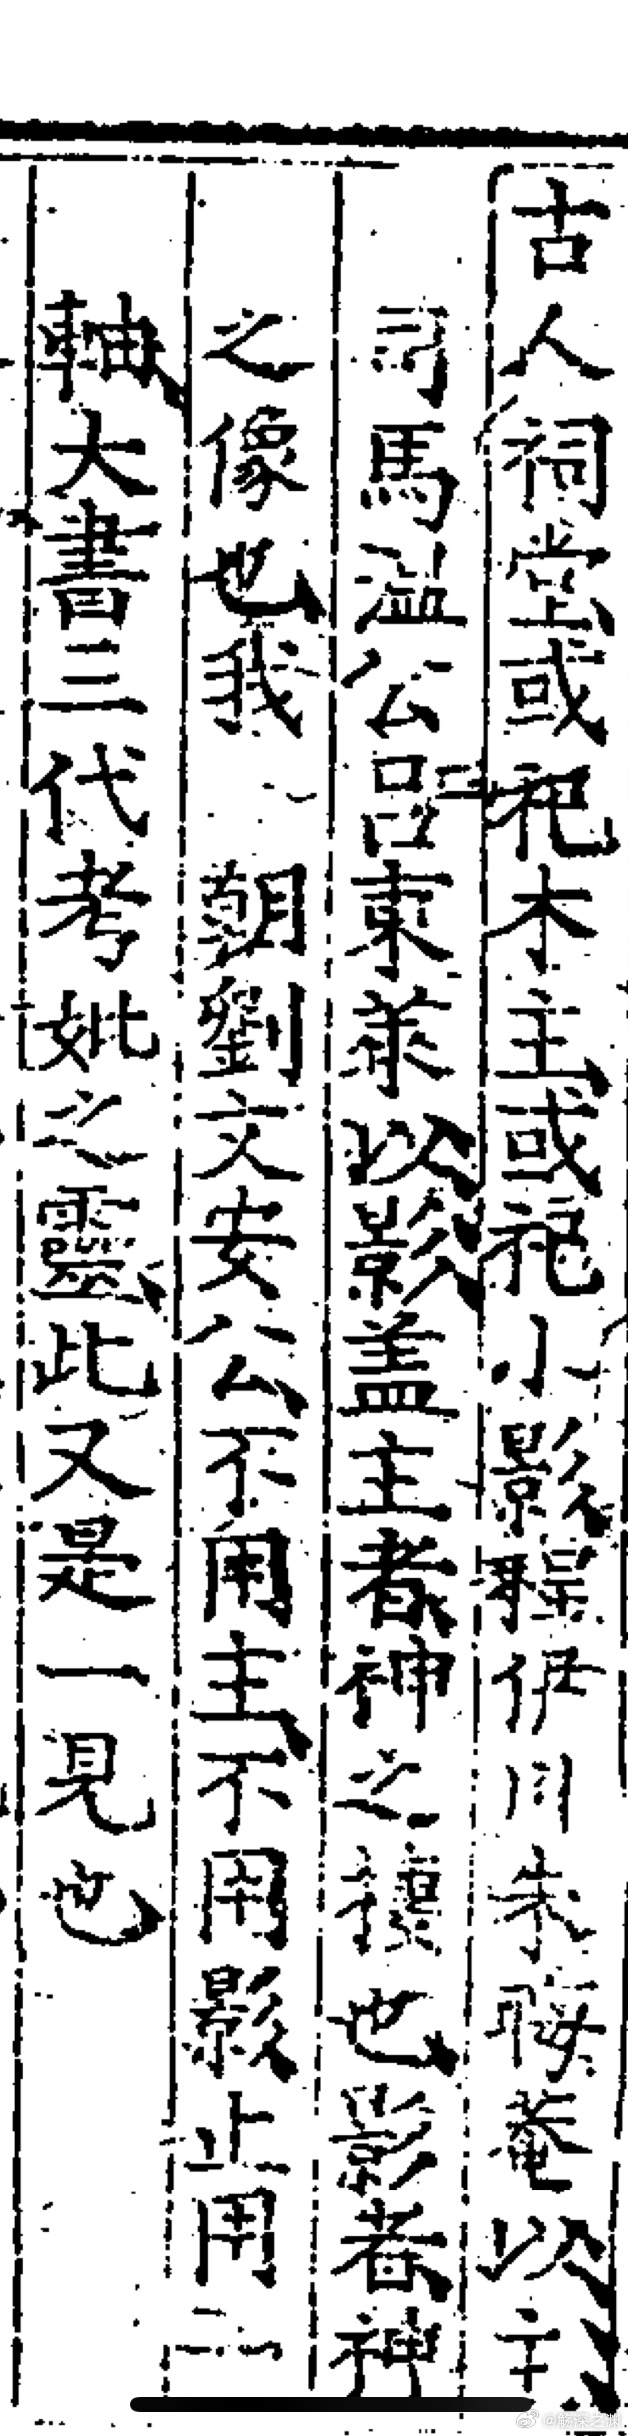 古人祠堂或祀木主或祀小影程伊川朱晦菴以主
司馬溫公呂東萊以影盖主者神之棲也影者神
之像也我 朝劉文安公不用主不用影止用一
軸大書三代考妣之靈此又是一見也